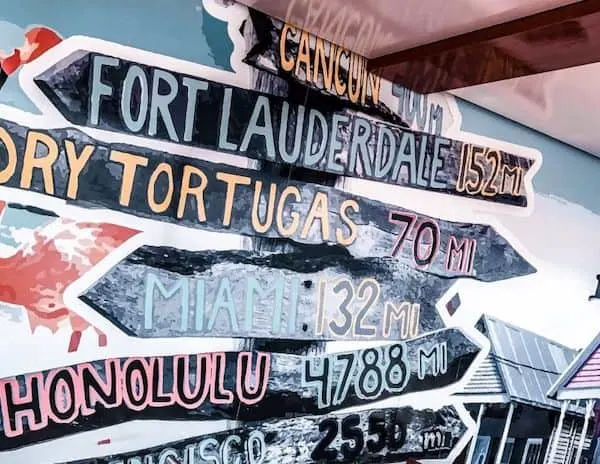 CANCUN 400 M
FORT LAUDERDALE 152 MI
DRY TORTUGAS 70 MI
MIAMI 132 MI
HONOLULU 4788 MI
CISCO 2550 mi